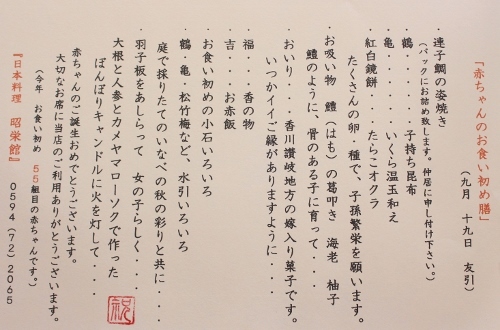 『赤ちゃんのお食い初め膳』
（九月　十九日　友引）
・連子鯛の姿焼き
（パックにお詰め致します。仲居に申し付け下さい。）
鶴・・・・・・・子持ち昆布
亀・・・・・・いくら温玉和え
・紅白鏡餅・・・たらこオクラ
たくさんの卵・種で、子孫繁栄を願います。
・お吸い物　鱧（はも）の葛叩き　海老　柚子
鱧のように、骨のある子に育って・・・
・おいり・・・香川讃岐地方の嫁入り菓子です。
いつかイイご縁がありますように・・・
福・・・香の物
吉・・・お赤飯
・お食い初めの小石いろいろ
・鶴・亀・松竹梅など、水引いろいろ
庭で採りたてのいなべの秋の彩りと共に・・・
・羽子板をあしらって　女の子らしく・・・
大根と人参とカメヤマローソクで作った
ぼんぼりキャンドルに火を灯して・・・
祝
赤ちゃんのご誕生おめでとうございます。
大切なお席に当店のご利用ありがとうございます。
（今年　お食い初め　55組目の赤ちゃんです。）
『日本料理　昭栄館』　0594（72）2065